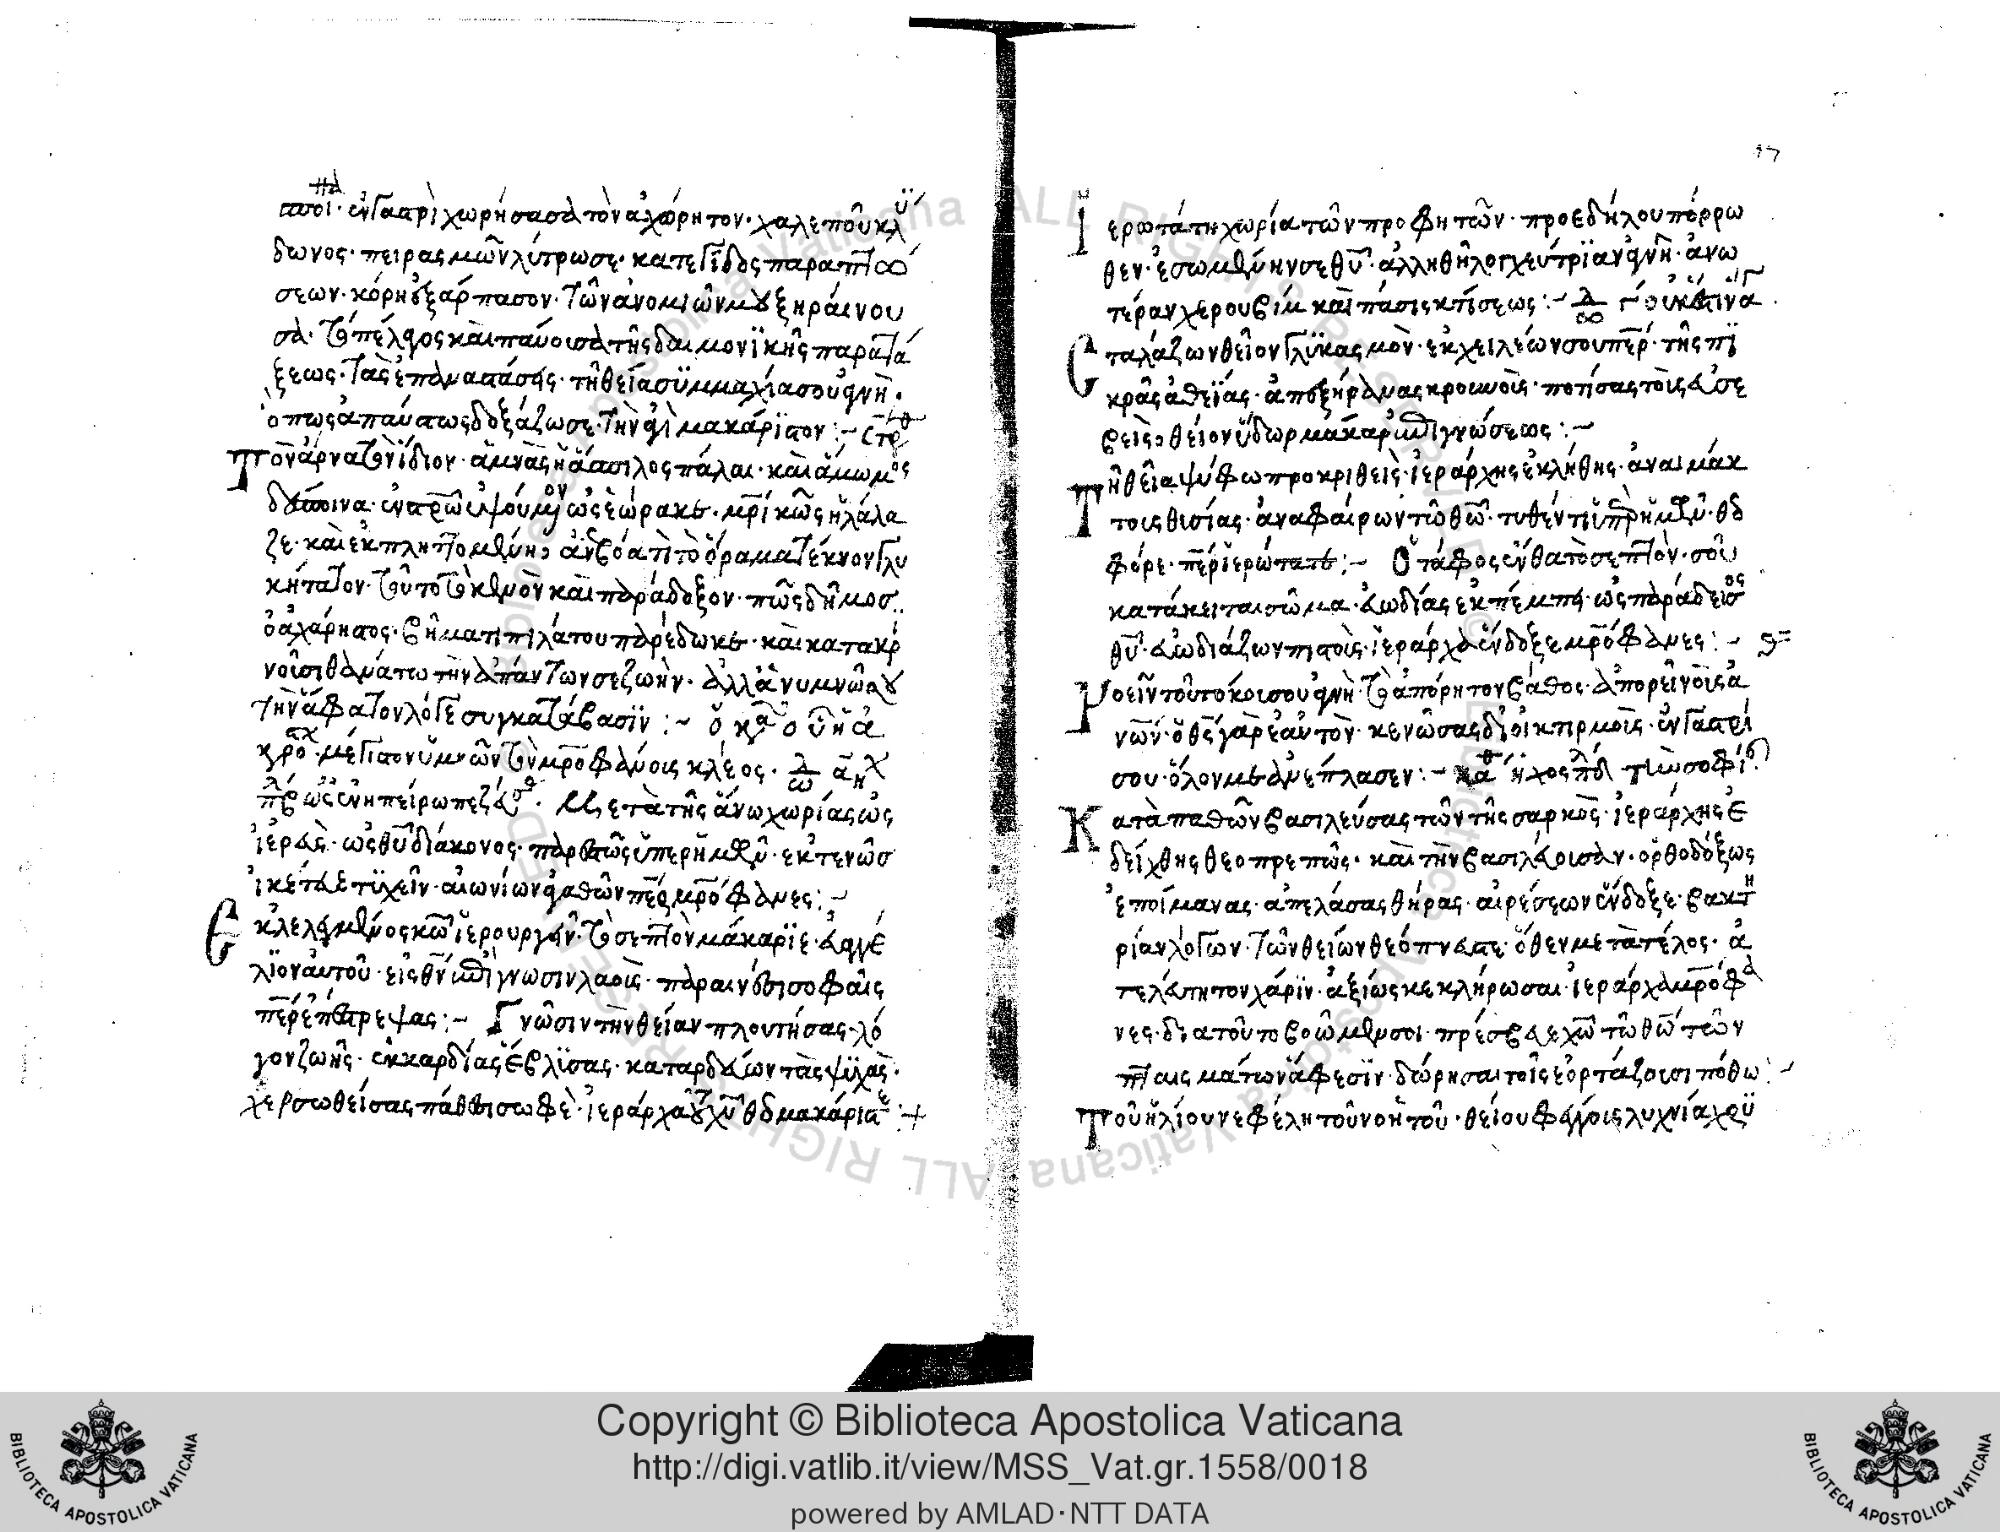 ἐν γαστρὶ χωρήσασα τὸν ἀχώρητον· χαλεποῦ κλύ
δωνος· πειρασμῶν λύτρωσε·
σεων· κόρη ἐξάρπασον· τῶν ἀνομιῶν μου ξηραίνου
σα· τὸ πέλαγος καὶ παύουσα τῆς δαιμονϊκῆς παρατά
ξεως· τὰς ἐπαναστάσεις· τῆ θεία συμμαχία σου ἁγνὴ·
ὅπως ἀπαύστως δοξάζω σε· τὴν ἀεὶ μακάριστον:-
Τὸν ἄρνα τὸν ἴδιον· ἀμνὰς ἡ ἄσπιλος πάλαι· καὶ ἄμωμος
δέσποινα· ἐν σταυρῶ ὑψούμενον ὡς ἑώρακε· μητρϊκῶς ἠλάλα
ζε· καὶ ἐκπληττομένη ἀνεβόα τί τὸ ὅραμα τέκνον γλυ
κήτατον· τοῦτο τὸ καινὸν καὶ παράδοξον· πῶς δῆμος
ὁ ἀχάρηστος· βήματι πιλάτου παρέδωκε· καὶ κατακρί
νουσι θανάτω τὴν ἀπάντων σε ζωήν· ἀλλ' ἀνυμνῶ σου
τὴν ἄφατον λόγε συγκατάβασϊν:-
μέγιστον ὑμνῶν τὸν μητροφάνους κλέος·
ὡς ἐν ἠπείρω πεζεύσας· Μετὰ τῆς ἄνω χωρίας ὡς
ἱερεὺς· ὡς θεοῦ διάκονος· παρεστὼς ὑπὲρ ἡμῶν· ἐκτενῶς
ἱκέτευε τϋχεῖν· αἰωνίων ἀγαθῶν πάτερ μητρόφανες:-
Ἐκλελεγμένος Χριστῶ ἱερουργεῖν· τὸ σεπτὸν μάκαρϊε· εὐαγγέ
λϊον αὐτοῦ· εἰς θεῖαν ἐπίγνωσιν λαοὺς· παραινέσεσι σοφαῖς
πάτερ ἐπέστρεψας:- Γνῶσιν τὴν θείαν πλουτήσας λό
γον ζωῆς· ἐκ καρδίας ἔβλϊσας· καταρδεύων τὰς ψϋχὰς·
χερσωθείσας πάθεσι σοφὲ· ἱεράρχα
Ἱερωτάτη χωρία τῶν προφητῶν· προεδήλου πόρρω
θεν· ἐσωμένην σε θεοῦ· ἀληθῆ λοχεύτρϊαν ἁγνὴ· ἀνω
τέραν χερουβὶμ καὶ πάσις κτίσεως:-
Σταλάζων θεῖον γλυκασμὸν· ἐκ χειλέων σου πάτερ· τῆς πϊ
κρᾶς ἀθεϊας· ἀπεξήρανας κρουνοὺς· ποτήσας τοὺς εὐσε
βεῖς θεῖον ὕδωρ μάκαρ ἐπιγνώσεως:-
Τῆ θεία ψύφω προκριθεὶς· ἱεράρχης ἐκλήθης· ἀναιμάκ
τοις θισίας· ἀναφαίρων τῶ θεῶ· τυθέντι ὑπὲρ ἡμῶν· θεο
φόρε· πάτερ ἱερώτατε:- Ὁ τάφος ἔνθα τὸ σεπτὸν· σοῦ
κατάκειται σῶμα· εὐωδίας ἐκπέμπει· ὡς παράδεισος
θεοῦ· εὐωδιάζων πιστοὺς· ἱεράρχα ἔνδοξε μητρόφανες:-
Ῥοεῖν τοῦ τόκοι σου ἁγνὴ· τὸ ἀπόρητον βάθος· ἀπορεῖ νοῦς ἀ
νων· ὁ θεὸς γὰρ ἑαυτὸν· κενώσας δι' οἰκτιρμοὺς· ἐν γαστρί
σου· ὅλον με ἀνέπλασεν:-
Κατὰ παθῶν βασιλεύσας τῶν τῆς σαρκὸς· ἱεράρχης ἐ
δείχθης θεοπρεπῶς· καὶ τὴν βασιλεύουσαν· ὀρθοδόξως
ἐποίμανας· ἀπελάσας θήρας· αἱρέσεων ἔνδοξε· βακτη
ρίαν λόγων· τῶν θείων θεόπνευστε· ὅθεν μετὰ τέλος· ἀ
τελεύτητον χάρϊν· ἀξίως κεκλήρωσαι· ἱεράρχα μητρόφα
νες· διὰ τοῦτο βοῶμεν σοι· πρέσβευε Χριστῶ τῶ θεῶ τῶν
πταισμάτων ἄφεσϊν· δωρήσαι τοῖς ἑορτάζουσι πόθω:-
Τοῦ ἡλίου νεφέλη τοῦ νοητοῦ· θείου φέγγους λυχνία
Copyright © Biblioteca Apostolica Vaticana
http://digi.vatlib.it/view/MSS_Vat.gr.1558/0018
powered by AMLAD·NTT DATA
BIBLIOTECA APOSTOLICA VATICANA
BIBLIOTECA APOSTOLICA VATICANA